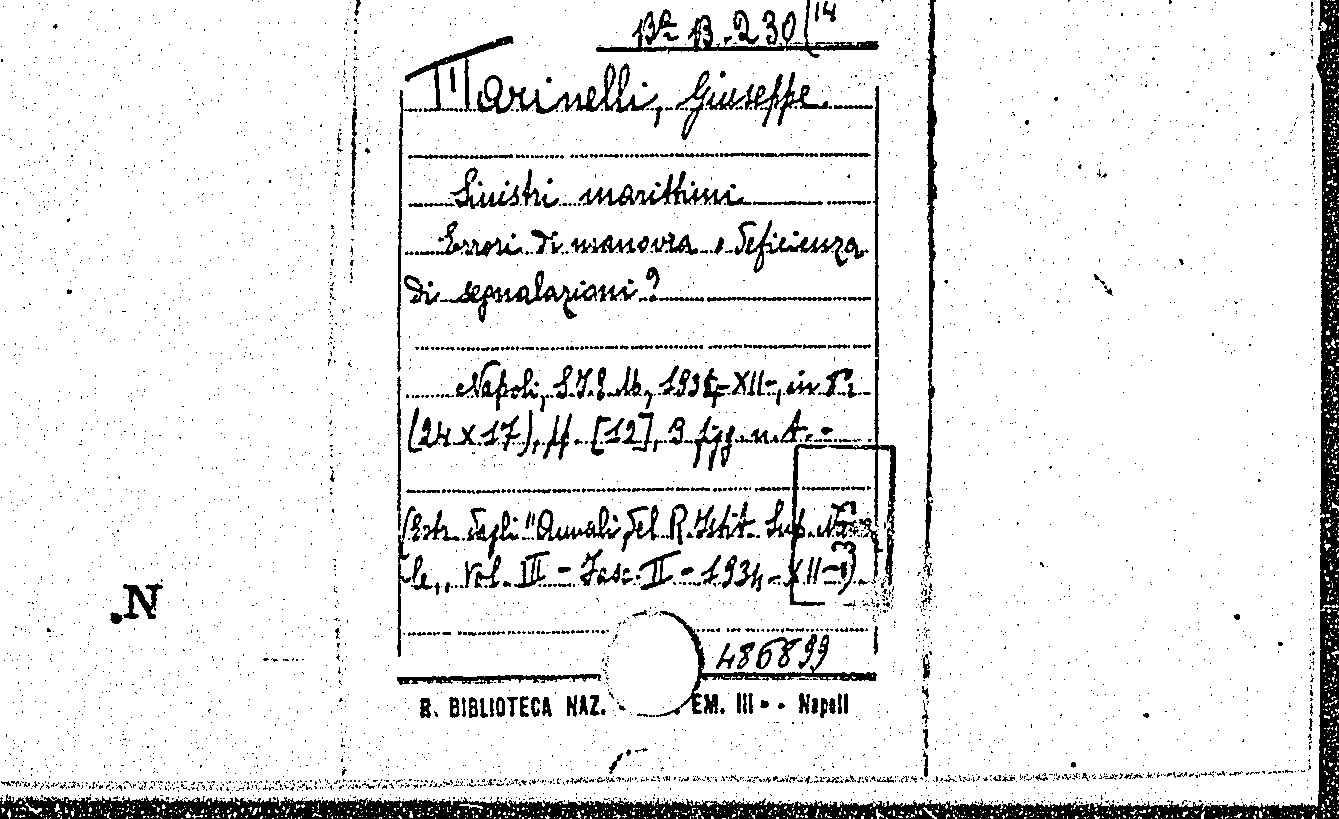 Bª B. 230 (14
Marinelli, Giuseppe.
Sinistri marittimi.
Errori di manovra o deficienza
di segnalazioni?
Napoli, S.I.E.M., 1934-XII-, in 8º.
(24 x 17), pp. [12], 9 figg. n. t. -
(Estr. dagli "Annali del R. Istit. Sup. Nava
le,, Vol. III - Fasc. II - 1934 - XII-).
486899
R. BIBLIOTECA NAZ. EM. III - - Napoli
.N